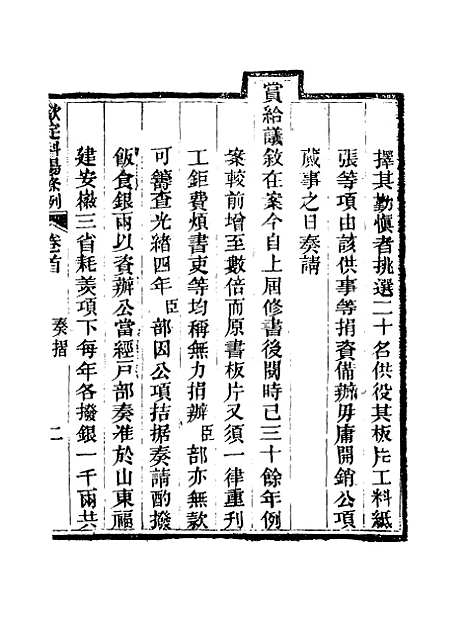 擇其勤愼者挑選二十名供役其板片工料紙
張等項由該供事等捐資備辦毋庸開銷公項
蕆事之日奏請
賞給議敘在案今自上屆修書後閱時已三十餘年例
案較前增至數倍而原書板片又須一律重刋
工鉅費煩書吏等均稱無力捐辦臣部亦無款
可籌查光緒四年臣部因公項拮据奏請酌撥
飯食銀兩以資辦公當經戸部奏准於山東福
建安徽三省耗羨項下每年各撥銀一千兩共
欽定科場條例 卷首 奏摺 二